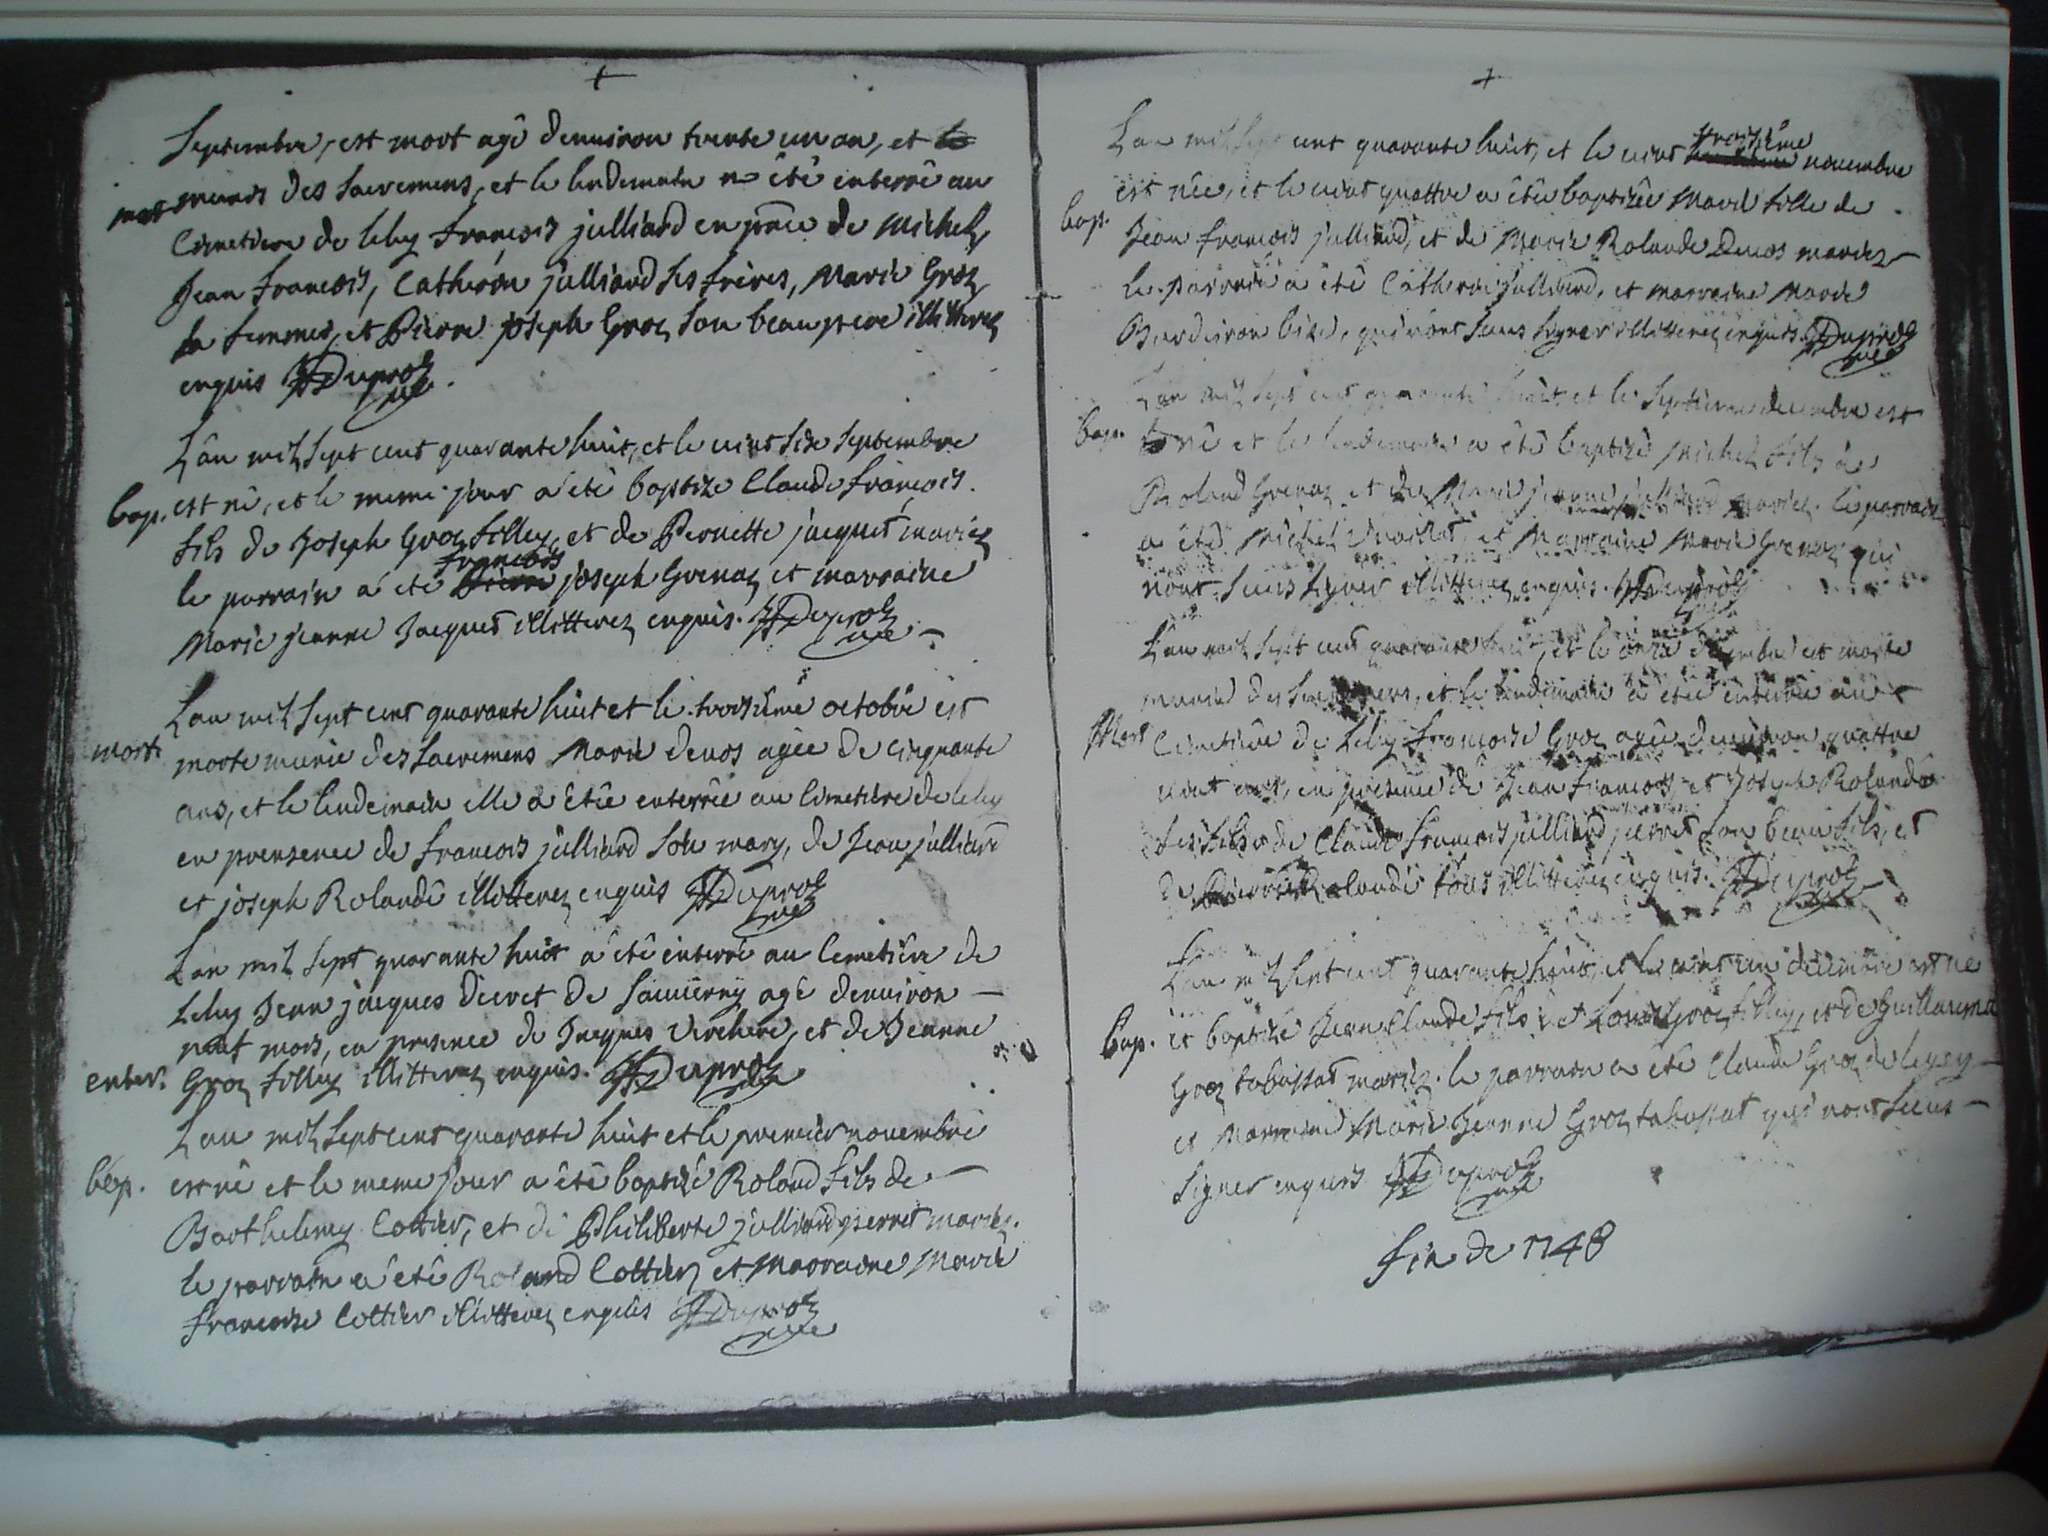 +
Septembre, est mort agé denuiron trente un an, et
mort munis des sacremens, et le lendemain a été enterré au
Cimetiere de Lelex François julliard en pnce de Michel,
Jean François, Catherine julliard ses freres, Marie Groz
sa femme, et Pierre joseph Groz son beau pere illitterez
enquis Duproz
L'an mil sept cent quarante huit, et le vint six septembre
bap. est né, et le meme jour a été baptize Claude françois
fils de Joseph Groz filley, et de Pernette jacquet mariez
françois
le parrain a été joseph Grenaz et marraine
Marie jeanne Jacquet illitterez enquis. Duproz
L'an mil sept cent quarante huit et le troisiéme octobre est
morte morte munie des sacremens Marie devos agée de cinquante
ans, et le lendemain elle a étée enterrée au Cimetiere de lelex
en presence de françois julliard son mary, de Jean julliard
et joseph Rolandé illitterez enquis Duproz
L'an mil sept quarante huit a été enterré au Cemetiere de
Lelex Jean jacques de agé denuiron
mois, en presence de Jacques et de Jeanne
enter. Groz filley illitterez enquis. Duproz
L'an mil sept cent quarante huit et le premier novembre
bap. est né et le meme jour a été baptizé Roland fils de
Barthelemy Cottier, et de Philiberte julliard mariez.
le parrain a été Roland Cottier et Marraine Marie
françoise Cottier illitterez enquis Duproz
+
L'an mil sept cent quarante huit, et le vint troisiéme novembre
bap. est née, et le vint quattre a étée baptizée Marie fille de
Jean françois julliard, et de Marie Rolande Devos mariez
le parrain a été julliard, et marraine Marie
qui n'ont sceus signer illitterez enquis. Duproz
L'an mil sept cent quarante huit et le septieme decembre est
bap. né et le lendemain a été baptizé Michel fils à
Roland Grenaz et de Marie jeanne julliard mariez. le parrain
a été Michel et Marraine Marie Grenaz qui
n'ont sceus signer illitterez enquis. Duproz
L'an mil sept cent quarante huit, et le onze decembre est morte
munie des sacremens, et le lendemain a étée enterrée au
Mort Cimetiere de Lelex françoise Groz agée denuiron quattre
vint ans, en presence de Jean françois, et Joseph Rolandé
ses fils de Claude françois julliard son beau fils, et
de Pierre Rolandé tous illitterez enquis. Duproz
L'an mil sept cent quarante huit, et le vint un decembre est né
bap. et baptizé Jean Claude fils à Groz filley, et de Guillauma
Groz tabussat mariez. le parrain a été Claude Groz
et Marraine Marie Jeanne Groz tabussat qui n'ont sceus
signer enquis Duproz
fin de 1748